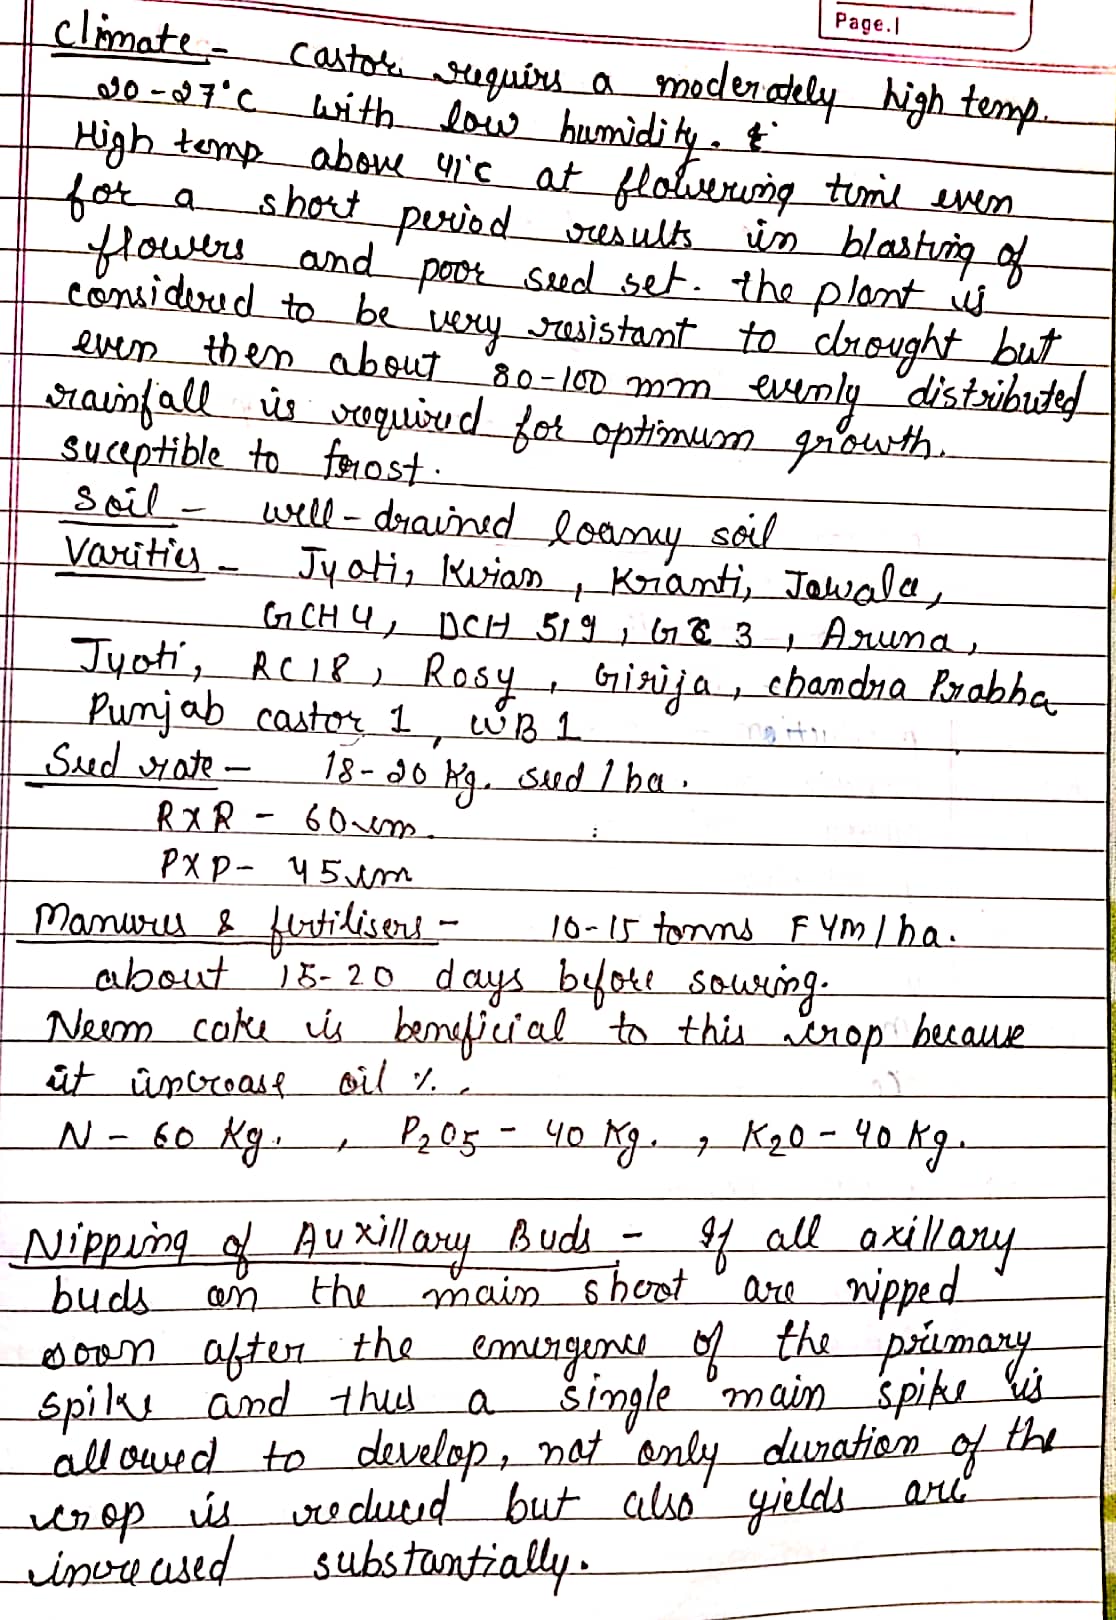 Page.
Climate - Castor requirs a moderately high temp.
20-27°C with low humidity. &
High temp above 41°C at flowering time even
for a short period results in blasting of
flowers and poor seed set. the plant is
considered to be very resistant to drought but
even then about 80-100 mm evenly distributed
rainfall is required for optimum growth.
suceptible to frost.
Soil - well-drained loamy soil
Varities - Jyoti, Kiran, Kranti, Jawala,
GCH 4, DCH 519, GC 3, Aruna,
Jyoti, RC18, Rosy, Girija, chandra Prabha
Punjab castor 1, WB 1
Seed rate - 18-20 Kg. seed / ha.
RXR - 60 cm.
PXP - 45 cm
Manures & fertilisers - 10-15 tonns FYM / ha.
about 15-20 days before sowing.
Neem cake is beneficial to this crop because
it increase oil %.
N - 60 Kg. , P2O5 - 40 Kg. , K2O - 40 Kg.
Nipping of Auxillary Buds - If all axillary
buds on the main shoot are nipped
soon after the emergence of the primary
spike and thus a single main spike is
allowed to develop, not only duration of the
crop is reduced but also yields are
increased substantially.